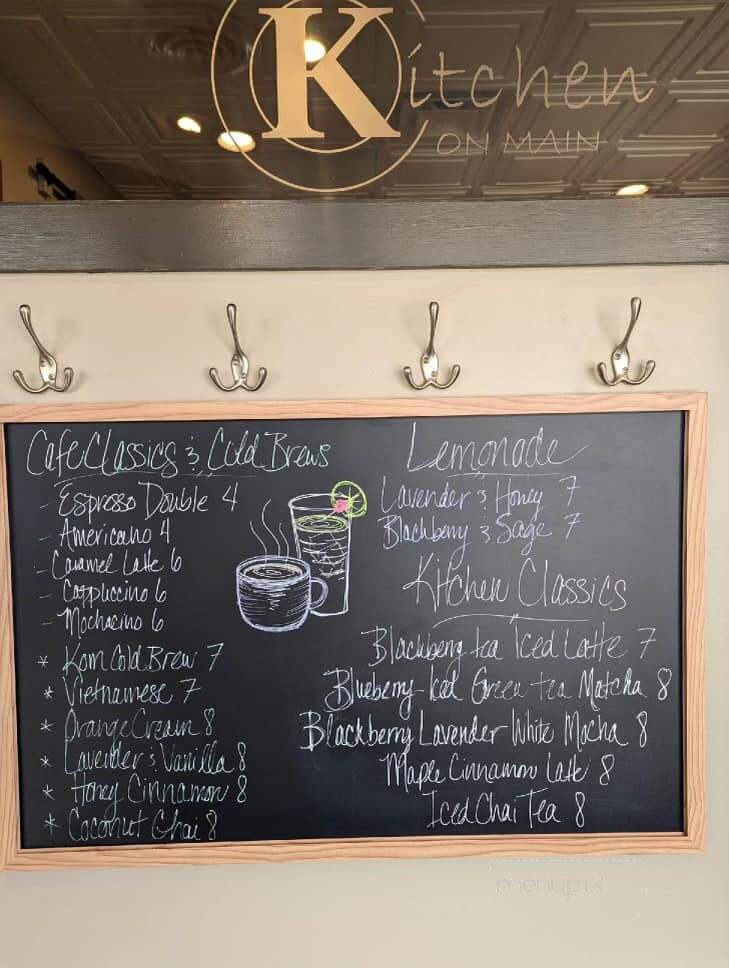 Kitchen
ON MAIN
Cafe Classics & Cold Brews
- Espresso Double 4
- Americano 4
- Caramel Latte 6
- Cappuccino 6
- Mochacino 6
* Kom Cold Brew 7
* Vietnamese 7
* Orange Cream 8
* Lavender & Vanilla 8
* Honey Cinnamon 8
* Coconut Chai 8
Lemonade
Lavender & Honey 7
Blackberry & Sage 7
Kitchen Classics
Blackberry tea Iced Latte 7
Blueberry Iced Green tea Matcha 8
Blackberry Lavender White Mocha 8
Maple Cinnamon Latte 8
Iced Chai Tea 8
menupix